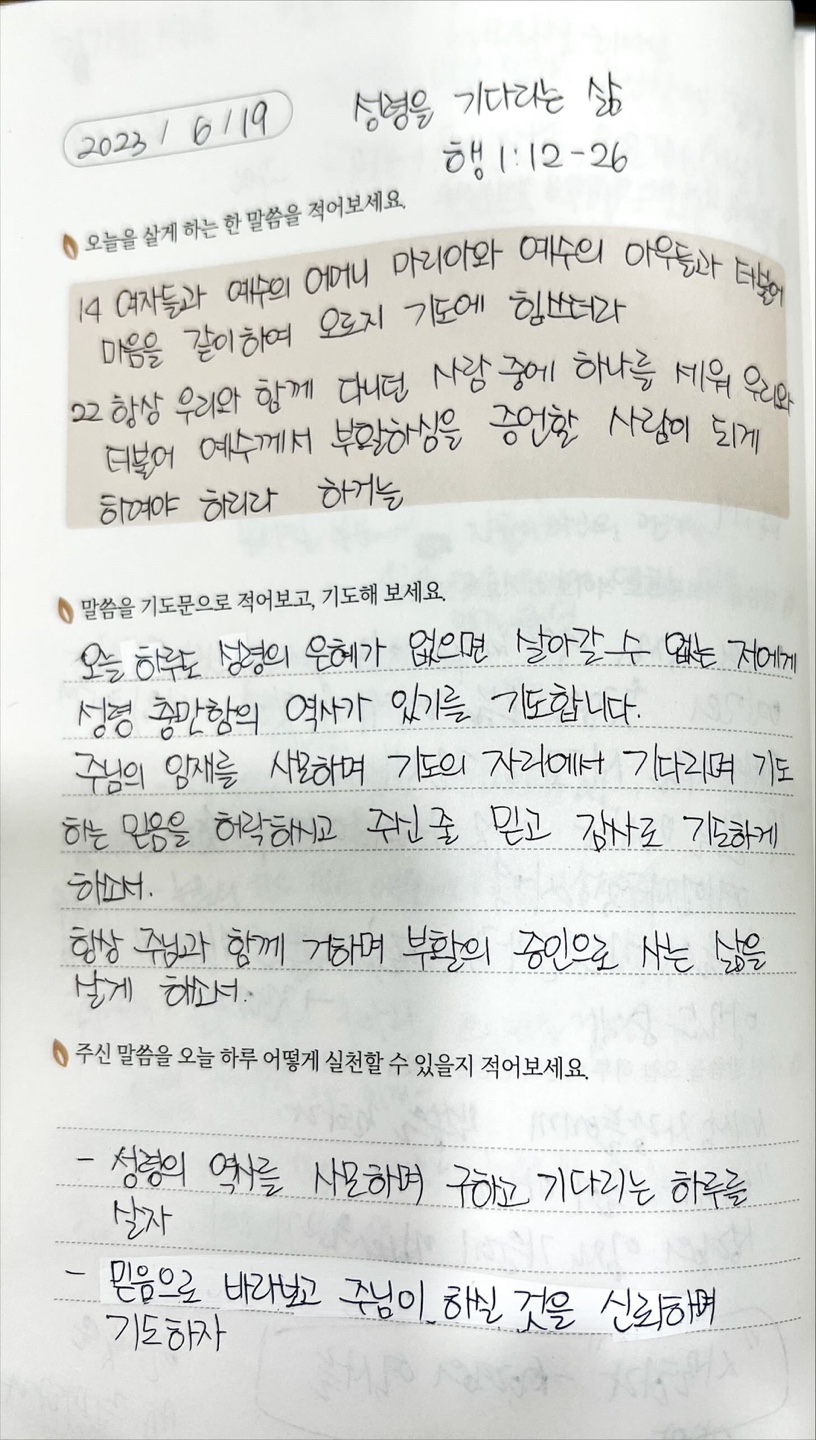 2023 / 6 / 19
성령을 기다리는 삶
행 1:12-26
오늘을 살게 하는 한 말씀을 적어보세요.
14 여자들과 예수의 어머니 마리아와 예수의 아우들과 더불어
마음을 같이하여 오로지 기도에 힘쓰더라
22 항상 우리와 함께 다니던 사람 중에 하나를 세워 우리와
더불어 예수께서 부활하심을 증언할 사람이 되게
하여야 하리라 하거늘
말씀을 기도문으로 적어보고, 기도해 보세요.
오늘 하루도 성령의 은혜가 없으면 살아갈 수 없는 저에게
성령 충만함의 역사가 있기를 기도합니다.
주님의 임재를 사모하며 기도의 자리에서 기다리며 기도
하는 믿음을 허락하시고 주신 줄 믿고 감사로 기도하게
하소서.
항상 주님과 함께 거하며 부활의 증인으로 사는 삶을
살게 하소서.
주신 말씀을 오늘 하루 어떻게 실천할 수 있을지 적어보세요.
- 성령의 역사를 사모하며 구하고 기다리는 하루를
살자
- 믿음으로 바라보고 주님이 하실 것을 신뢰하며
기도하자